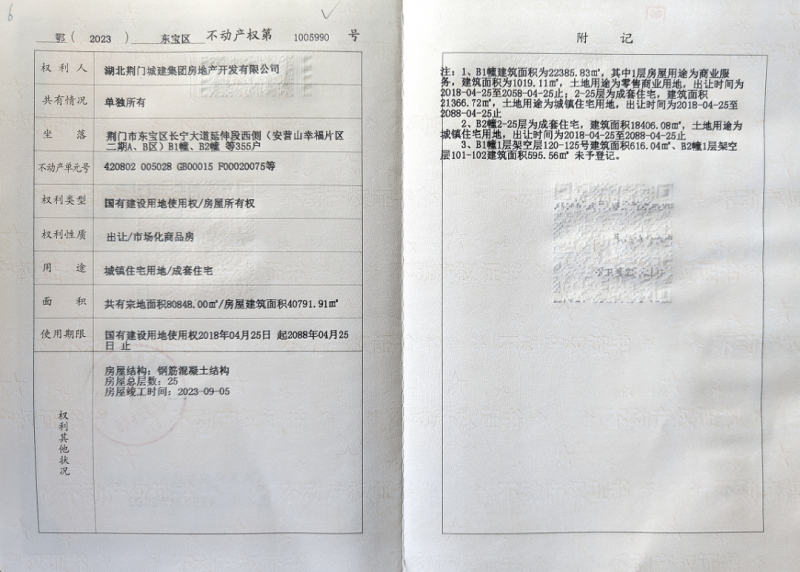 6
鄂( 2023 ) 东宝区 不动产权第 1005990 号
权利人 湖北荆门城建集团房地产开发有限公司
共有情况 单独所有
坐落 荆门市东宝区长宁大道延伸段西侧(安营山幸福片区
二期A、B区)B1幢、B2幢 等355户
不动产单元号 420802 005028 GB00015 F00020075等
权利类型 国有建设用地使用权/房屋所有权
权利性质 出让/市场化商品房
用途 城镇住宅用地/成套住宅
面积 共有宗地面积80848.00㎡/房屋建筑面积40791.91㎡
使用期限 国有建设用地使用权2018年04月25日 起2088年04月25
日 止
权利其他状况
房屋结构:钢筋混凝土结构
房屋总层数:25
房屋竣工时间:2023-09-05
附记
注:1、B1幢建筑面积为22385.83㎡,其中1层房屋用途为商业服
务,建筑面积为1019.11㎡,土地用途为零售商业用地,出让时间为
2018-04-25至2058-04-25止;2-25层为成套住宅,建筑面积
21366.72㎡,土地用途为城镇住宅用地,出让时间为2018-04-25至
2088-04-25止
2、B2幢2-25层为成套住宅,建筑面积18406.08㎡,土地用途为
城镇住宅用地,出让时间为2018-04-25至2088-04-25止
3、B1幢1层架空层120-125号建筑面积616.04㎡、B2幢1层架空
层101-102建筑面积595.56㎡ 未予登记。